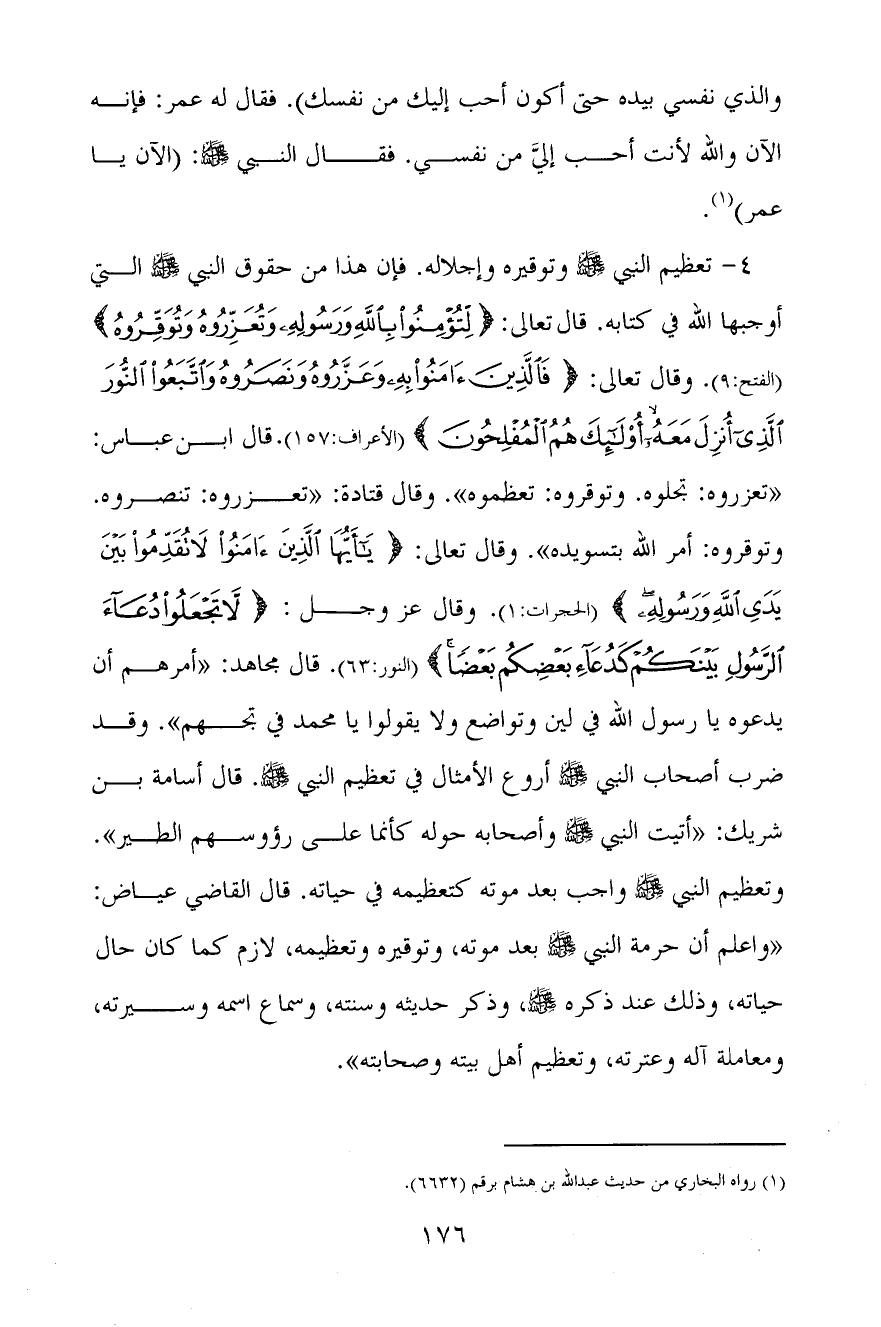 والذي نفسي بيده حتى أكون أحب إليك من نفسك). فقال له عمر: فإنه
الآن والله لأنت أحب إليَّ من نفسي. فقال النبي ﷺ: (الآن يا
عمر)(١).
٤- تعظيم النبي ﷺ وتوقيره وإجلاله. فإن هذا من حقوق النبي ﷺ التي
أوجبها الله في كتابه. قال تعالى: ﴿ لِّتُؤْمِنُوا۟ بِٱللَّهِ وَرَسُولِهِۦ وَتُعَزِّرُوهُ وَتُوَقِّرُوهُ ﴾
(الفتح:٩). وقال تعالى: ﴿ فَٱلَّذِينَ ءَامَنُوا۟ بِهِۦ وَعَزَّرُوهُ وَنَصَرُوهُ وَٱتَّبَعُوا۟ ٱلنُّورَ
ٱلَّذِىٓ أُنزِلَ مَعَهُۥٓ ۙ أُو۟لَـٰٓئِكَ هُمُ ٱلْمُفْلِحُونَ ﴾ (الأعراف:١٥٧). قال ابن عباس:
«تعزروه: تجلوه. وتوقروه: تعظموه». وقال قتادة: «تعزروه: تنصروه.
وتوقروه: أمر الله بتسويده». وقال تعالى: ﴿ يَـٰٓأَيُّهَا ٱلَّذِينَ ءَامَنُوا۟ لَا تُقَدِّمُوا۟ بَيْنَ
يَدَىِ ٱللَّهِ وَرَسُولِهِۦ ۖ ﴾ (الحجرات:١). وقال عز وجل : ﴿ لَّا تَجْعَلُوا۟ دُعَآءَ
ٱلرَّسُولِ بَيْنَكُمْ كَدُعَآءِ بَعْضِكُم بَعْضًا ۚ ﴾ (النور:٦٣). قال مجاهد: «أمرهم أن
يدعوه يا رسول الله في لين وتواضع ولا يقولوا يا محمد في تجهم». وقد
ضرب أصحاب النبي ﷺ أروع الأمثال في تعظيم النبي ﷺ. قال أسامة بن
شريك: «أتيت النبي ﷺ وأصحابه حوله كأنما على رؤوسهم الطير».
وتعظيم النبي ﷺ واجب بعد موته كتعظيمه في حياته. قال القاضي عياض:
«واعلم أن حرمة النبي ﷺ بعد موته، وتوقيره وتعظيمه، لازم كما كان حال
حياته، وذلك عند ذكره ﷺ، وذكر حديثه وسنته، وسماع اسمه وسيرته،
ومعاملة آله وعترته، وتعظيم أهل بيته وصحابته».
(١) رواه البخاري من حديث عبدالله بن هشام برقم (٦٦٣٢).
١٧٦